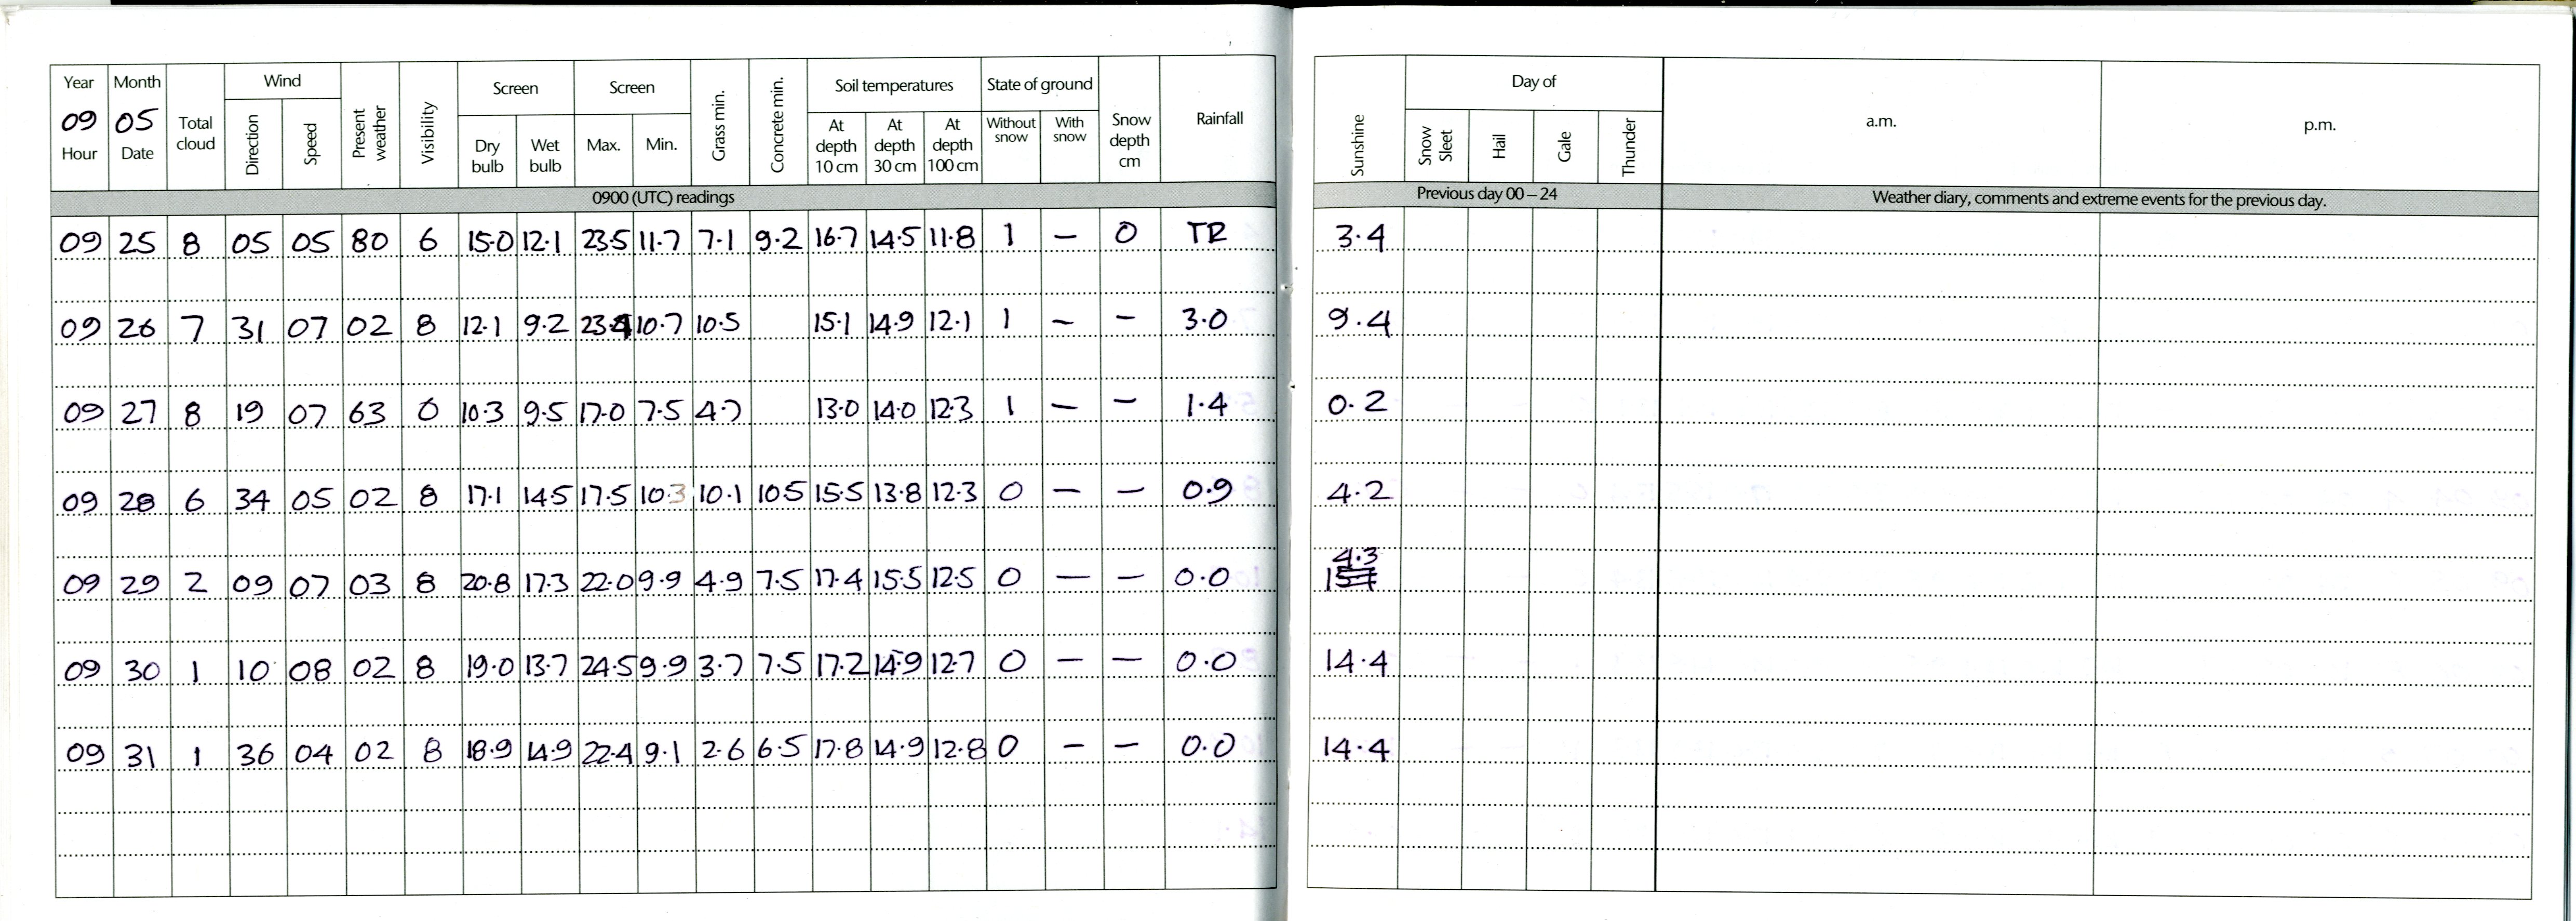 Year Month Total cloud Wind Present weather Visibility Screen Screen Grass min. Concrete min. Soil temperatures State of ground Snow depth cm Rainfall Sunshine Day of a.m. p.m.
09 05 Direction Speed Dry bulb Wet bulb Max. Min. At depth 10 cm At depth 30 cm At depth 100 cm Without snow With snow Snow Sleet Hail Gale Thunder
Hour Date
0900 (UTC) readings Previous day 00 – 24 Weather diary, comments and extreme events for the previous day.
09 25 8 05 05 80 6 15.0 12.1 23.5 11.7 7.1 9.2 16.7 14.5 11.8 1 — 0 TR 3.4
09 26 7 31 07 02 8 12.1 9.2 23.4 10.7 10.5 15.1 14.9 12.1 1 — — 3.0 9.4
09 27 8 19 07 63 6 10.3 9.5 17.0 7.5 4.7 13.0 14.0 12.3 1 — — 1.4 0.2
09 28 6 34 05 02 8 17.1 14.5 17.5 10.3 10.1 10.5 15.5 13.8 12.3 0 — — 0.9 4.2
09 29 2 09 07 03 8 20.8 17.3 22.0 9.9 4.9 7.5 17.4 15.5 12.5 0 — — 0.0 4.3
09 30 1 10 08 02 8 19.0 13.7 24.5 9.9 3.7 7.5 17.2 14.9 12.7 0 — — 0.0 14.4
09 31 1 36 04 02 8 18.9 14.9 22.4 9.1 2.6 6.5 17.8 14.9 12.8 0 — — 0.0 14.4